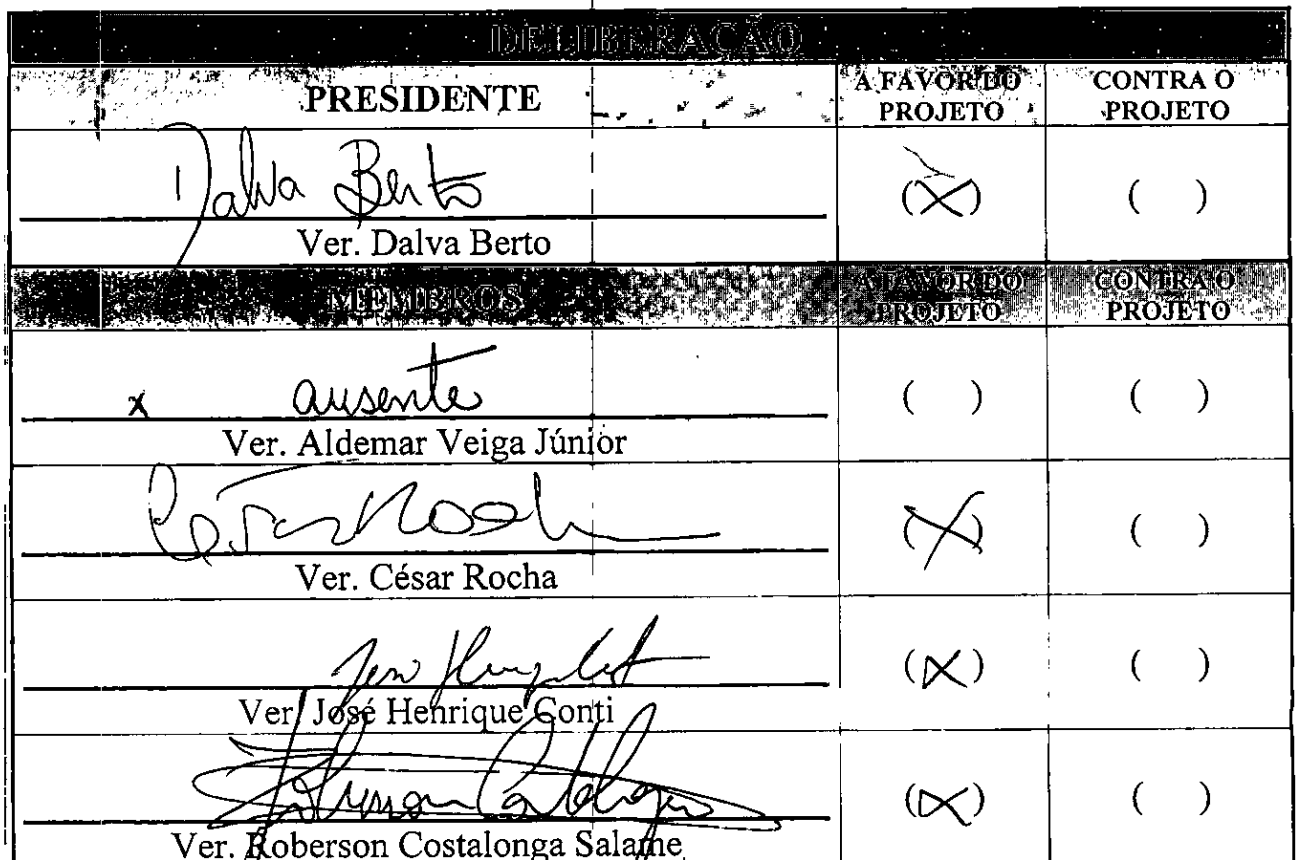 DELIBERAÇÃO
PRESIDENTE
A FAVOR DO PROJETO
CONTRA O PROJETO
Dalva Berto
(X)
( )
Ver. Dalva Berto
MEMBROS
A FAVOR DO PROJETO
CONTRA O PROJETO
x ausente
( )
( )
Ver. Aldemar Veiga Júnior
(X)
( )
Ver. César Rocha
(X)
( )
Ver. José Henrique Conti
(X)
( )
Ver. Roberson Costalonga Salame